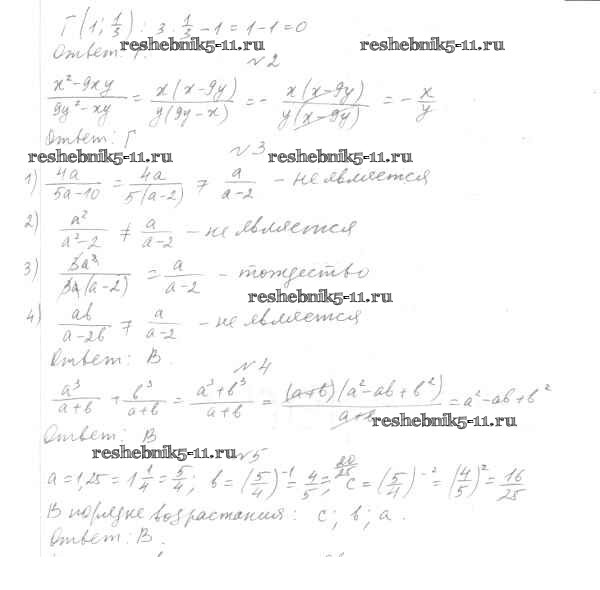 Г(1; 1/3) : 3 · 1/3 − 1 = 1 − 1 = 0
reshebnik5-11.ru
reshebnik5-11.ru
Ответ: Г.
№2
(x² − 9xy)/(9y² − xy) = x(x − 9y)/(y(9y − x)) = − x(x − 9y)/(y(x − 9y)) = − x/y
Ответ: Г
reshebnik5-11.ru
№3
reshebnik5-11.ru
1) 4a/(5a − 10) = 4a/(5(a − 2)) ≠ a/(a − 2) – не является
2) a²/(a² − 2) ≠ a/(a − 2) – не является
3) 3a²/(3a(a − 2)) = a/(a − 2) – тождество
reshebnik5-11.ru
4) ab/(a − 2b) ≠ a/(a − 2) – не является
Ответ: В.
№4
a³/(a + b) + b³/(a + b) = (a³ + b³)/(a + b) = (a + b)(a² − ab + b²)/(a + b) = a² − ab + b²
reshebnik5-11.ru
Ответ: В
reshebnik5-11.ru
№5
a = 1,25 = 1 1/4 = 5/4; b = (5/4)⁻¹ = 4/5 = 20/25; c = (5/4)⁻² = (4/5)² = 16/25
В порядке возрастания: c; b; a.
Ответ: В.